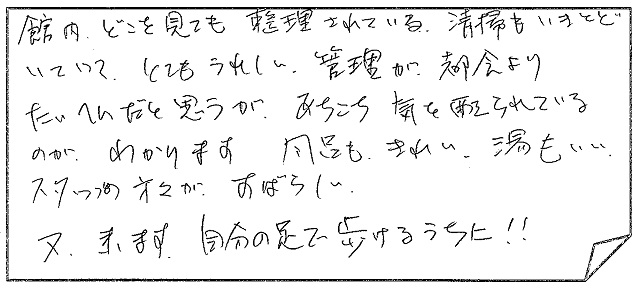 館内、どこを見ても整理されている。清掃もいきとど
いていて、とてもうれしい。管理が、都会より
たいへんだと思うが、あちこち気を配られている
のが、わかります 風呂も、きれい、湯もいい、
スタッフの方々が、すばらしい。
又、来ます、自分の足で歩けるうちに!!